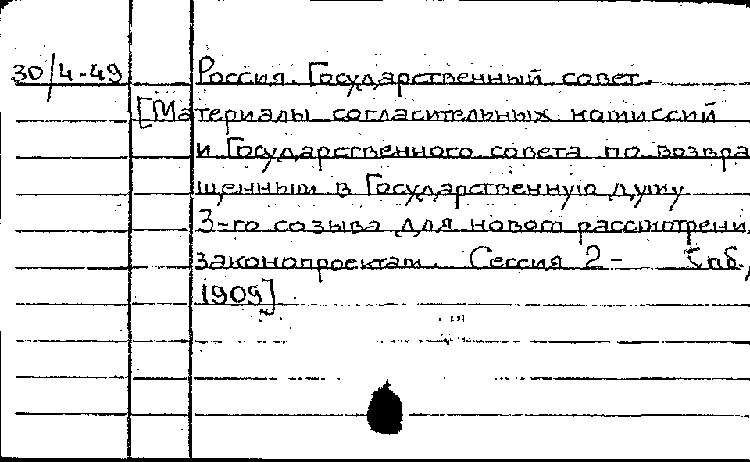 30/4-49 Россия. Государственный совет.
[Материалы согласительных комиссий
и Государственного совета по возвра
щенным в Государственную думу
3-го созыва для нового рассмотрени
законопроектам. Сессия 2- Спб.,
1909]